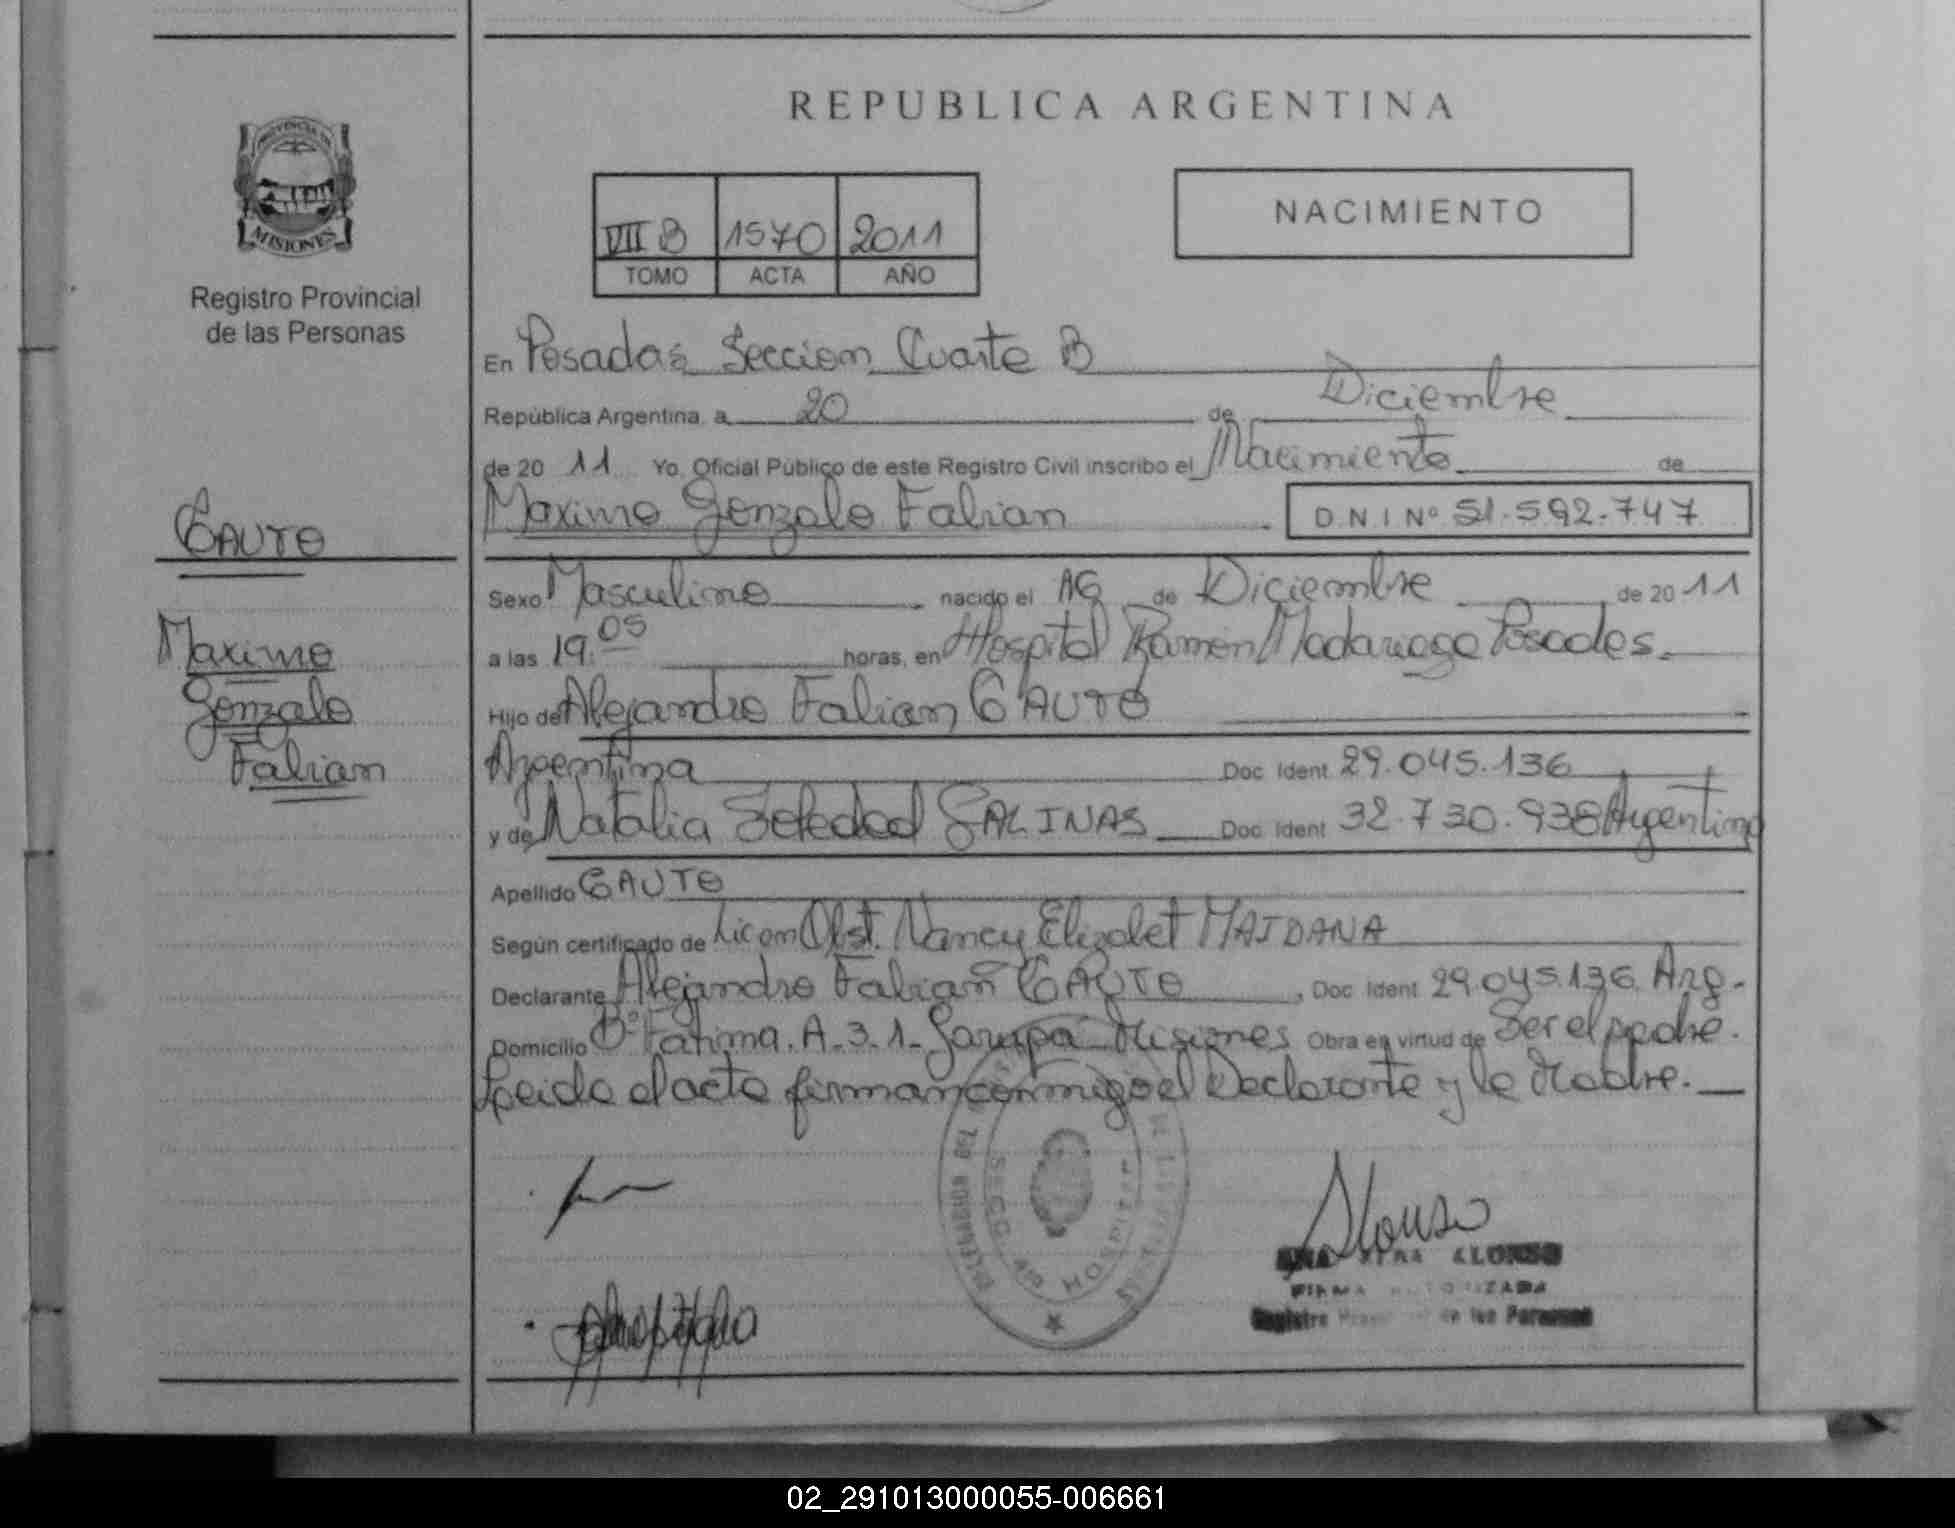 REPUBLICA ARGENTINA
PROVINCIA DE
MISIONES
Registro Provincial
de las Personas
VII B 1570 2011
TOMO ACTA AÑO
NACIMIENTO
En Posadas Seccion Cuarta B
República Argentina, a 20 de Diciembre
de 20 11 Yo, Oficial Público de este Registro Civil inscribo el Nacimiento de
Maximo Gonzalo Fabian D.N.I Nº 51.592.747
GAUTO
Maximo
Gonzalo
Fabian
Sexo Masculino nacido el 16 de Diciembre de 20 11
a las 19.05 horas, en Hospital Ramon Madariaga Posadas.
Hijo de Alejandro Fabian GAUTO
Argentina Doc Ident 29.045.136
y de Natalia Soledad SALINAS Doc Ident 32.730.938 Argentina
Apellido GAUTO
Según certificado de Licen Obst. Nancy Elizabet MAIDANA
Declarante Alejandro Fabian GAUTO, Doc Ident 29.045.136 Arg.
Domicilio Bº Fatima. A-3-1- Garupa Misiones Obra en virtud de Ser el padre.
Leida el acta firman conmigo el Declarante y la Madre.
DELEGACION DEL
Alonso
ALONSO
FIRMA AUTORIZADA
Registro de las Personas
02_291013000055-006661